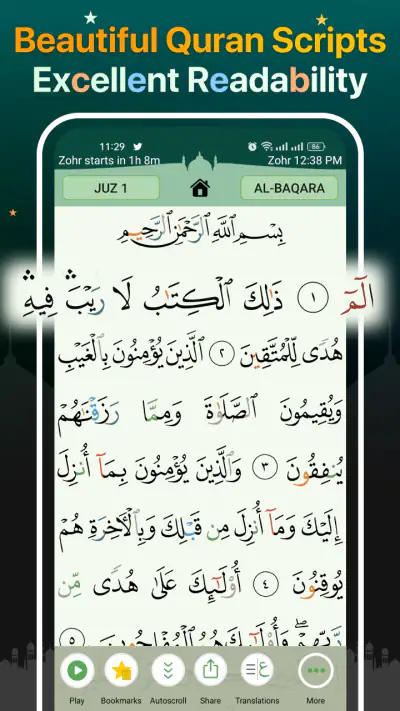 Beautiful Quran Scripts
Excellent Readability
11:29 86
Zohr starts in 1h 8m Zohr 12:38 PM
JUZ 1 AL-BAQARA
بِسْمِ اللَّهِ الرَّحْمَٰنِ الرَّحِيمِ
الٓمٓ ١ ذَٰلِكَ الْكِتَابُ لَا رَيْبَ ۛ فِيهِ ۛ
هُدًى لِّلْمُتَّقِينَ ٢ الَّذِينَ يُؤْمِنُونَ بِالْغَيْبِ
وَيُقِيمُونَ الصَّلَاةَ وَمِمَّا رَزَقْنَٰهُمْ
يُنفِقُونَ ٣ وَالَّذِينَ يُؤْمِنُونَ بِمَآ أُنزِلَ
إِلَيْكَ وَمَآ أُنزِلَ مِن قَبْلِكَ وَبِالْآخِرَةِ هُمْ
يُوقِنُونَ ٤ أُولَٰٓئِكَ عَلَىٰ هُدًى مِّن
رَّبِّهِمْ ۖ وَأُولَٰٓئِكَ هُمُ الْمُفْلِحُونَ ٥
Play Bookmarks Autoscroll Share Translations More